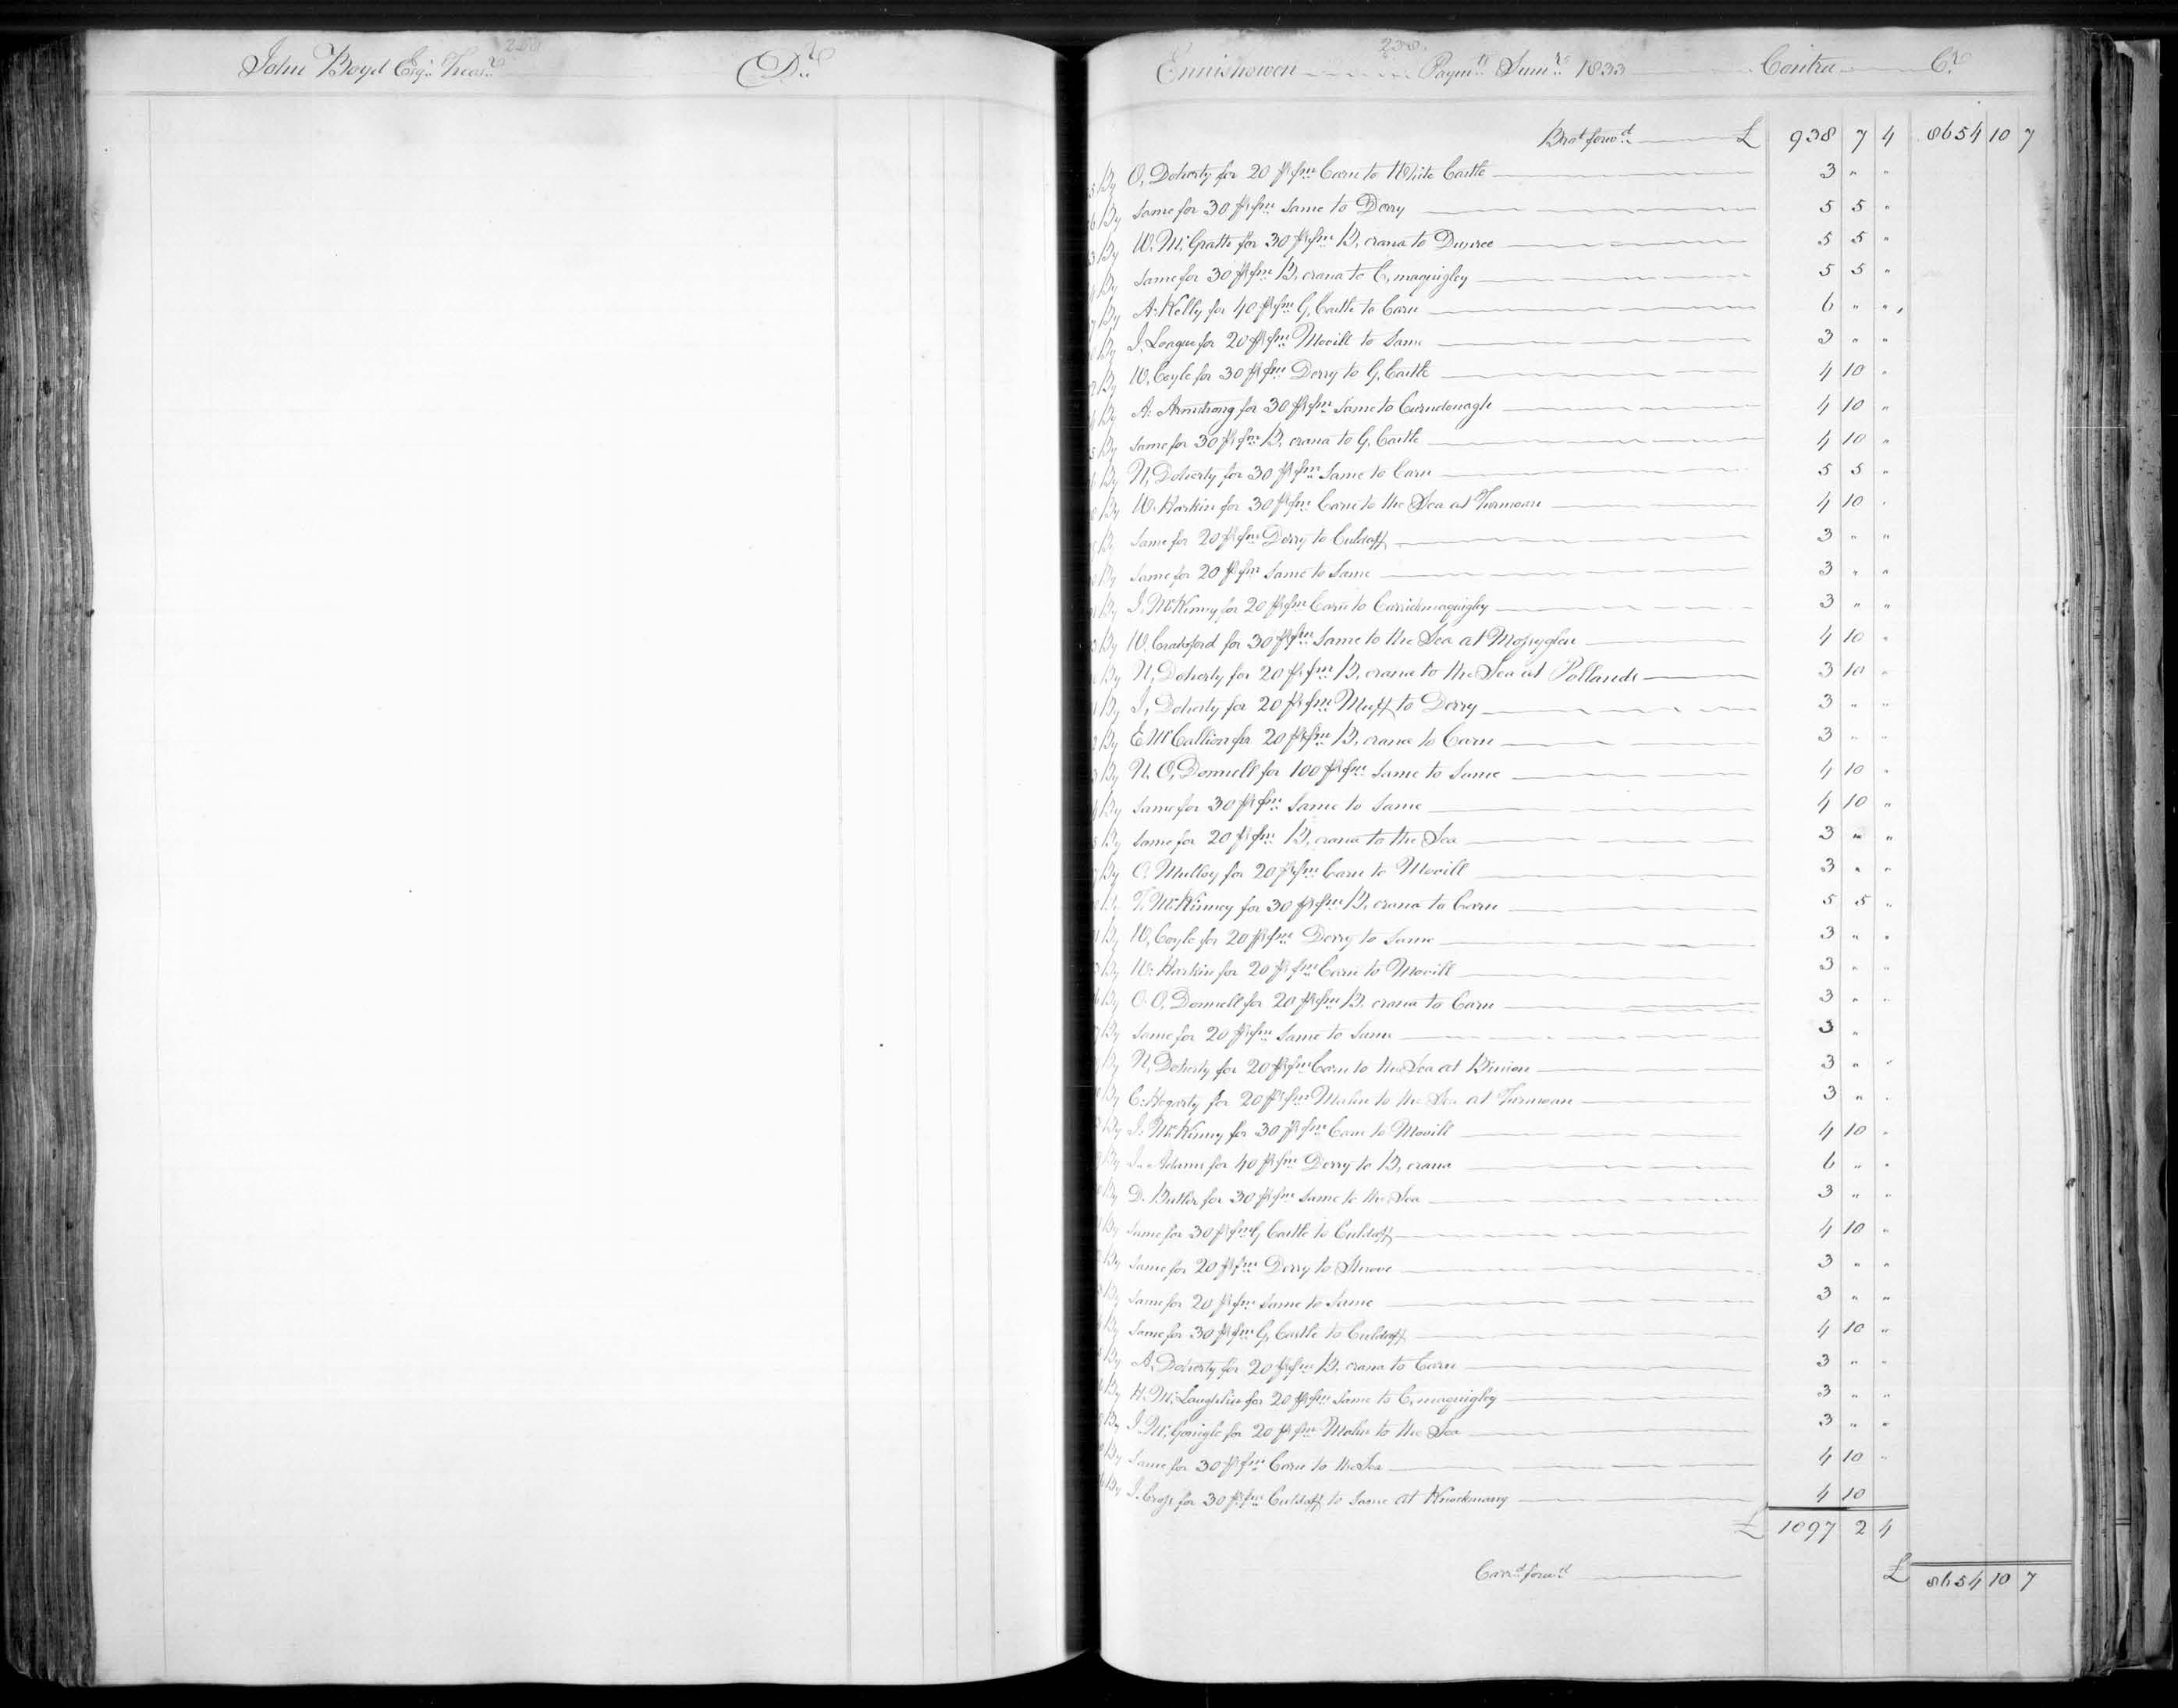 John Boyd Esqr. Treasr. Dr.
238
Ennishowen Paymts. Sumr. 1833 Contra Cr.
Brot. forwd. £ 938 7 4 8654 10 7
By O, Doherty for 20 ps fm Carn to White Castle 3 " "
By Same for 30 ps fm Same to Derry 5 5 "
By W. McGrath for 30 ps fm B, crana to Dunree 5 5 "
By Same for 30 ps fm B, crana to C, maquigley 5 5 "
By A. Kelly for 40 ps fm G, Castle to Carn 6 " "
By J. League for 20 ps fm Movill to Same 3 " "
By W, Coyle for 30 ps fm Derry to G, Castle 4 10 "
By A. Armstrong for 30 ps fm Same to Carndonagh 4 10 "
By Same for 30 ps fm B, crana to G, Castle 4 10 "
By N, Doherty for 30 ps fm Same to Carn 5 5 "
By W. Harkin for 30 ps fm Carn to the Sea at 4 10 "
By Same for 20 ps fm Derry to Culdaff 3 " "
By Same for 20 ps fm Same to Same 3 " "
By J. McKinney for 20 ps fm Carn to Carrickmaquigley 3 " "
By W. Crawford for 30 ps fm Same to the Sea at Mossyglen 4 10 "
By N, Doherty for 20 ps fm B, crana to the Sea at 3 10 "
By J, Doherty for 20 ps fm Muff to Derry 3 " "
By E McCallion for 20 ps fm B, crana to Carn 3 " "
By N. O, Donnell for 100 ps fm Same to Same 4 10 "
By Same for 30 ps fm Same to Same 4 10 "
By Same for 20 ps fm B, crana to the Sea 3 " "
By C. Mulloy for 20 ps fm Carn to Movill 3 " "
By T. McKinney for 30 ps fm B, crana to Carn 5 5 "
By W, Coyle for 20 ps fm Derry to Same 3 " "
By W. Harkin for 20 ps fm Carn to Movill 3 " "
By O. O, Donnell for 20 ps fm B, crana to Carn 3 " "
By Same for 20 ps fm Same to Same 3 "
By N, Doherty for 20 ps fm Carn to the Sea at Binion 3 " "
By C. Hegarty for 20 ps fm Malin to the Sea at 3 " "
By J. McKinney for 30 ps fm Carn to Movill 4 10 "
By J. Adams for 40 ps fm Derry to B, crana 6 " "
By D. Butler for 30 ps fm Same to the Sea 3 " "
By Same for 30 ps fm G, Castle to Culdaff 4 10 "
By Same for 20 ps fm Derry to Shrove 3 " "
By Same for 20 ps fm Same to Same 3 " "
By Same for 30 ps fm G, Castle to Culdaff 4 10 "
By A, Doherty for 20 ps fm B, crana to Carn 3 " "
By H. McLaughlin for 20 ps fm Same to C, maquigley 3 " "
By J. McGonigle for 20 ps fm Malin to the Sea 3 " "
By Same for 30 ps fm Carn to the Sea 4 10 "
By J. Cross for 30 ps fm Culdaff to Same at Knockmany 4 10
£ 1097 2 4
Carrd. forwd. £ 8654 10 7